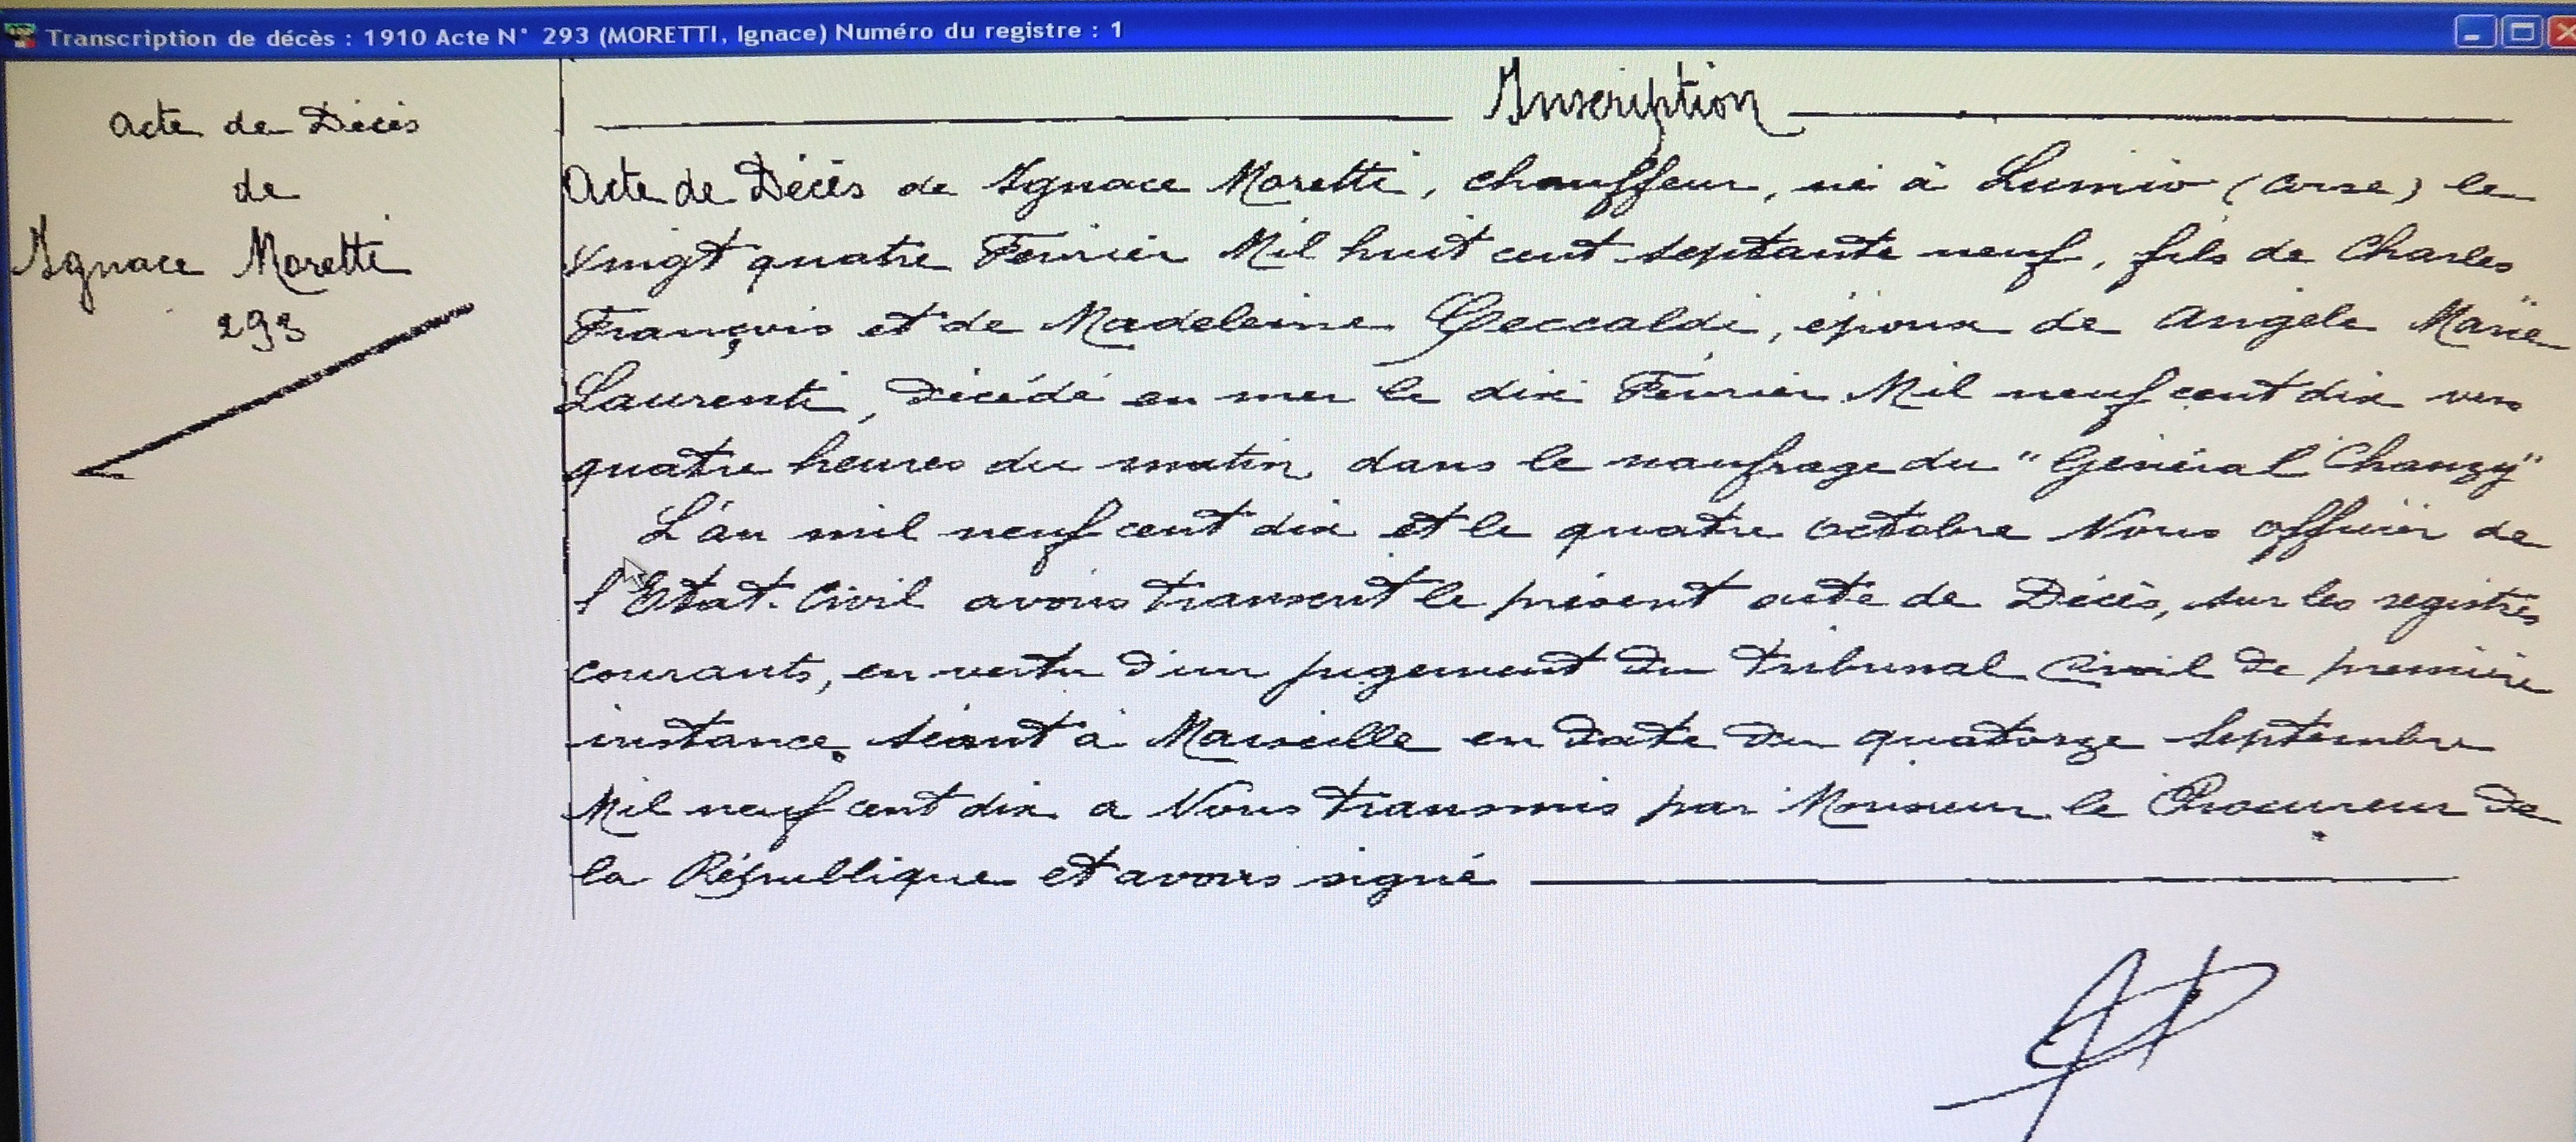 Transcription de décès : 1910 Acte N° 293 (MORETTI, Ignace) Numéro du registre : 1
Acte de Décès
de
Ignace Moretti
293
Inscription
Acte de Décès de Ignace Moretti, chauffeur, né à Lumio (Corse) le
vingt quatre Février Mil huit cent septante neuf, fils de Charles
François et de Madeleine Ceccaldi, époux de Angèle Marie
Laurenti, décédé en mer le dix Février Mil neuf cent dix vers
quatre heures du matin dans le naufrage du "Général Chanzy"
L'an mil neuf cent dix et le quatre octobre Nous officier de
l'Etat-Civil avons transcrit le présent acte de Décès, sur les registres
courants, en vertu d'un jugement du Tribunal Civil de première
instance séant à Marseille en date du quatorze Septembre
Mil neuf cent dix a Nous transmis par Monsieur le Procureur de
la République et avons signé